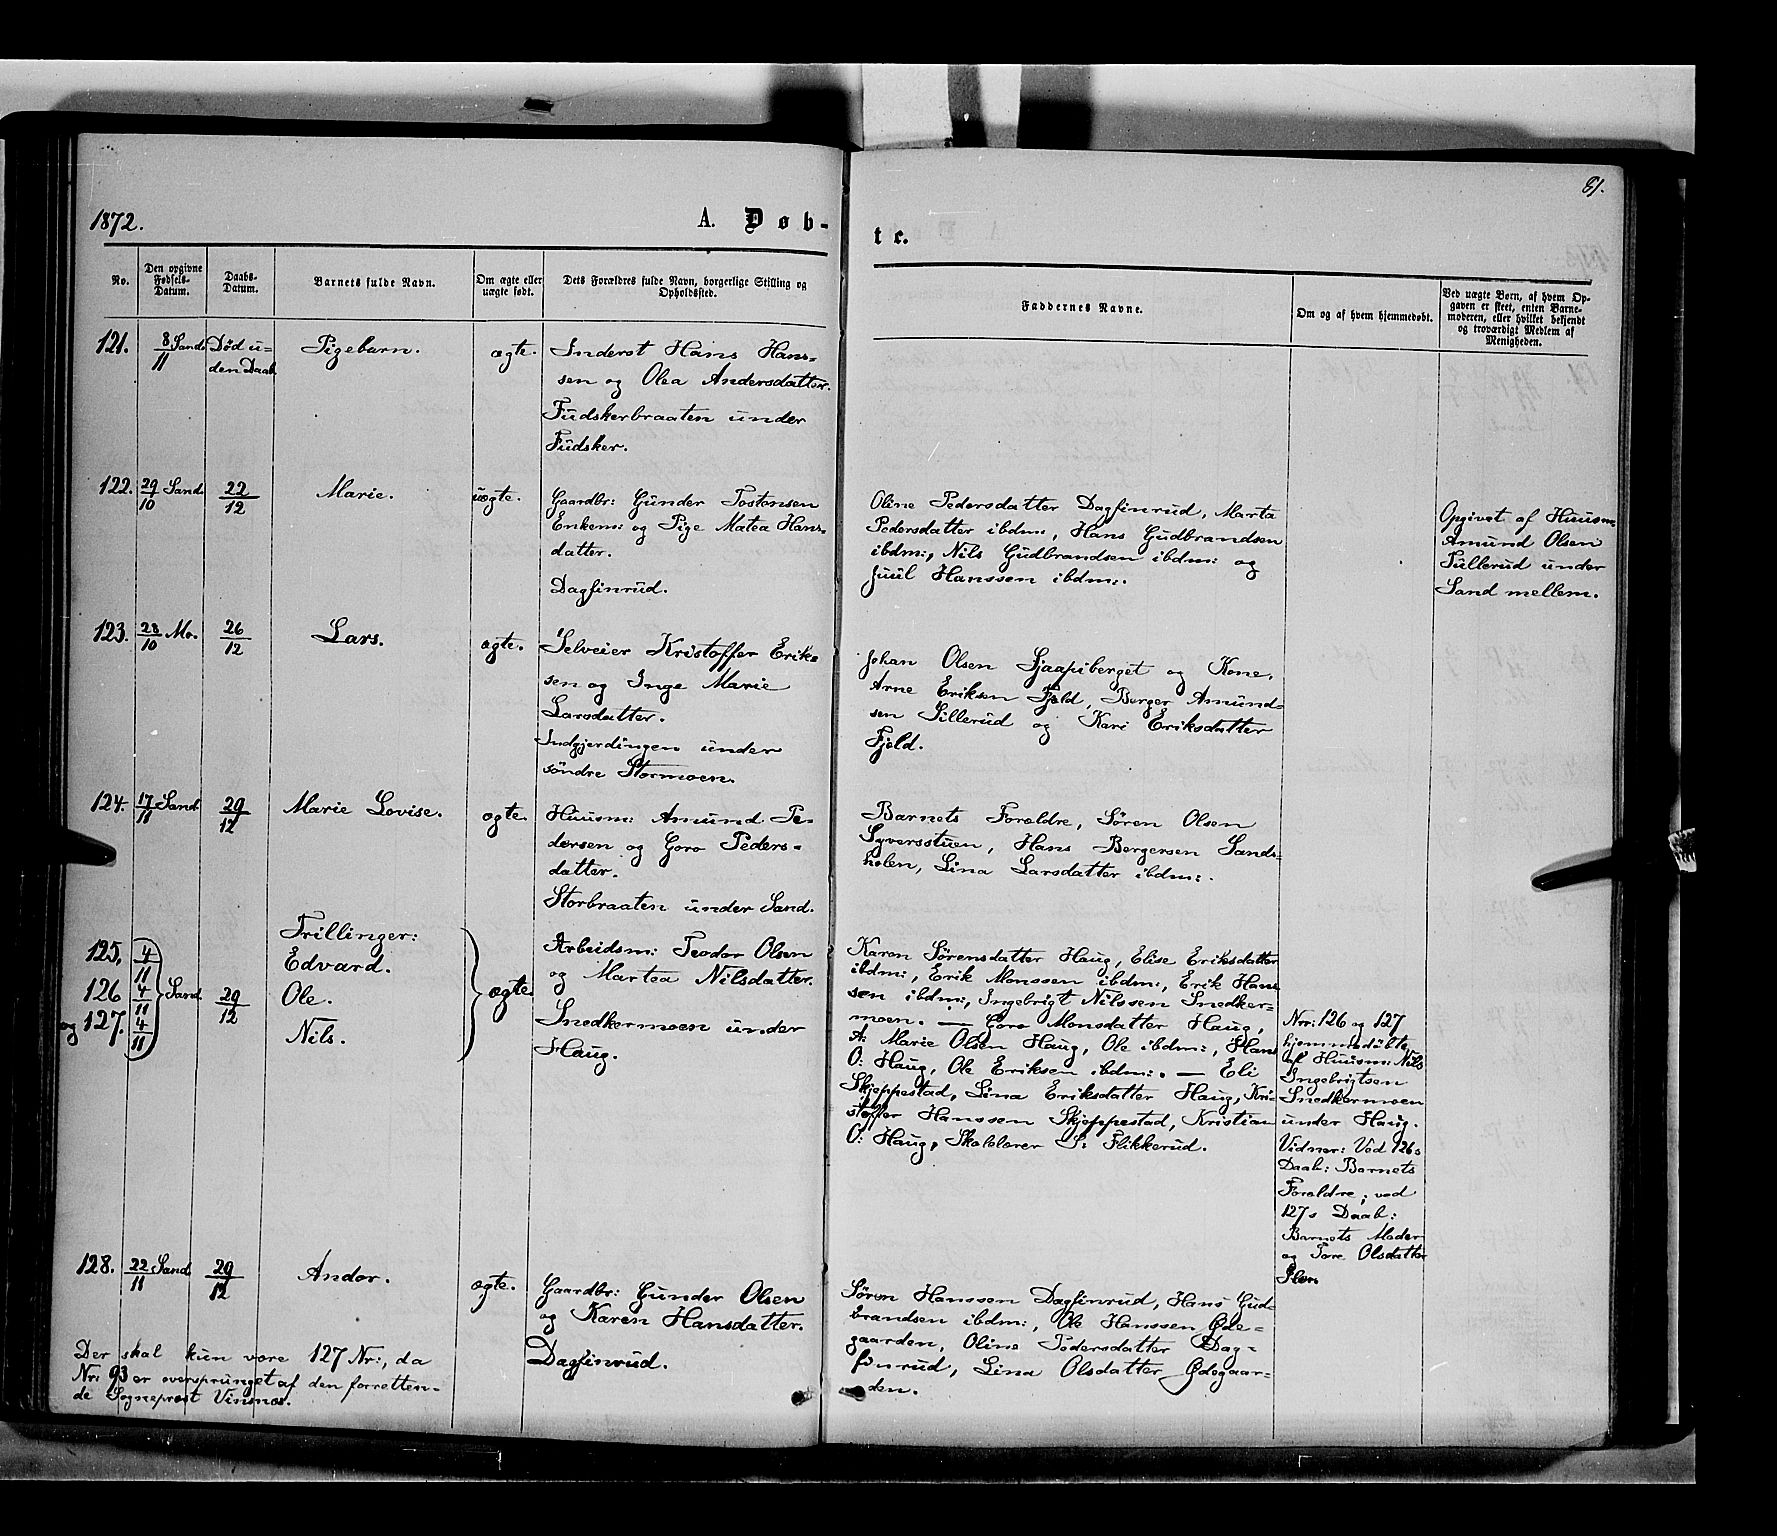 81.
1872.
A. Døb-
te.
No.
Den opgivne Fødsels-Datum.
Daabs-Datum.
Barnets fulde Navn.
Om ægte eller uægte født.
Dets Forældres fulde Navn, borgerlige Stilling og Opholdssted.
Faddernes Navne.
Om og af hvem hjemmedøbt.
Ved uægte Børn, af hvem Op-
gaven er skeet, enten Barne-
moderen, eller hvilket bekjendt
og troværdigt Medlem af
Menigheden.
121. 8/11 Sand. Død u-
den Daab
Pigebarn.
ægte.
Inderst Hans Hans-
sen og Olea Andersdatter.
Fudskerbraaten under
Fudsker.
122. 29/10 Sand. 22/12 Marie. uægte.
Gaardbr: Gunder Tostensen
Enkem: og Pige Matea Hans-
datter.
Dagfinrud.
Oline Pedersdatter Dagfinrud, Marta
Pedersdatter ibdm:, Hans Gudbrandsen
ibdm:, Nils Gudbrandsen ibdm: og
Juul Hanssen ibdm:.
Opgivet af Huusm.
Amund Olsen
Tullerud under
Sand mellem.
123. 28/10 Mo. 26/12 Lars. ægte.
Selveier Kristoffer Erik-
sen og Inge Marie
Larsdatter.
Indgjerdingen under
søndre Stormoen.
Johan Olsen Sjaapiberget og Kone,
Arne Eriksen Fjeld, Berger Amund-
sen Sillerud og Kari Eriksdatter
Fjeld.
124. 17/11 Sand 29/12 Marie Lovise. ægte.
Huusm: Amund Pe-
dersen og Goro Peders-
datter.
Storbraaten under Sand.
Barnets Forældre, Søren Olsen
Syversstuen, Hans Bergersen Sands-
holen, Lina Larsdatter ibdm:.
Trillinger:
125. 4/11 Edvard.
126 4/11 Sand. 29/12 Ole. ægte.
og 127. 4/11 Nils.
Arbeidsm: Teodor Olsen
og Martea Nilsdatter.
Snedkermoen under
Haug.
Karen Sørensdatter Haug, Elise Eriksdatter
ibdm:, Erik Monssen ibdm:, Erik Hans-
sen ibdm:, Ingebrigt Nilssen Snedker-
moen. — Goro Monsdatter Haug,
A: Marie Olsen Haug, Ole ibdm:, Hans
O: Haug, Ole Eriksen ibdm:. — Eli
Skjeppestad, Lina Eriksdatter Haug, Kri-
stoffer Hanssen Skjeppestad, Kristian
O: Haug, Skolelærer S: Flikkerud.
Nrr: 126 og 127
hjemmedøbte
af Huusm: Nils
Ingebrigtsen
Snedkermoen
under Haug.
Vidner: Ved 126s
Daab: Barnets
Forældre; ved
127s Daab:
Barnets Moder
og Tore Olsdatter
128. 22/11 Sand 29/12 Andor. ægte.
Gaardbr: Gunder Olsen
og Karen Hansdatter.
Dagfinrud.
Søren Hanssen Dagfinrud, Hans Gud-
brandsen ibdm:, Ole Hanssen Øde-
gaarden, Oline Pedersdatter Dag-
finrud, Lina Olsdatter Ødegaar-
den.
Der skal kun være 127 Nr:, da
Nr: 93 er oversprunget af den forretten-
de Sogneprest Vinsnes.